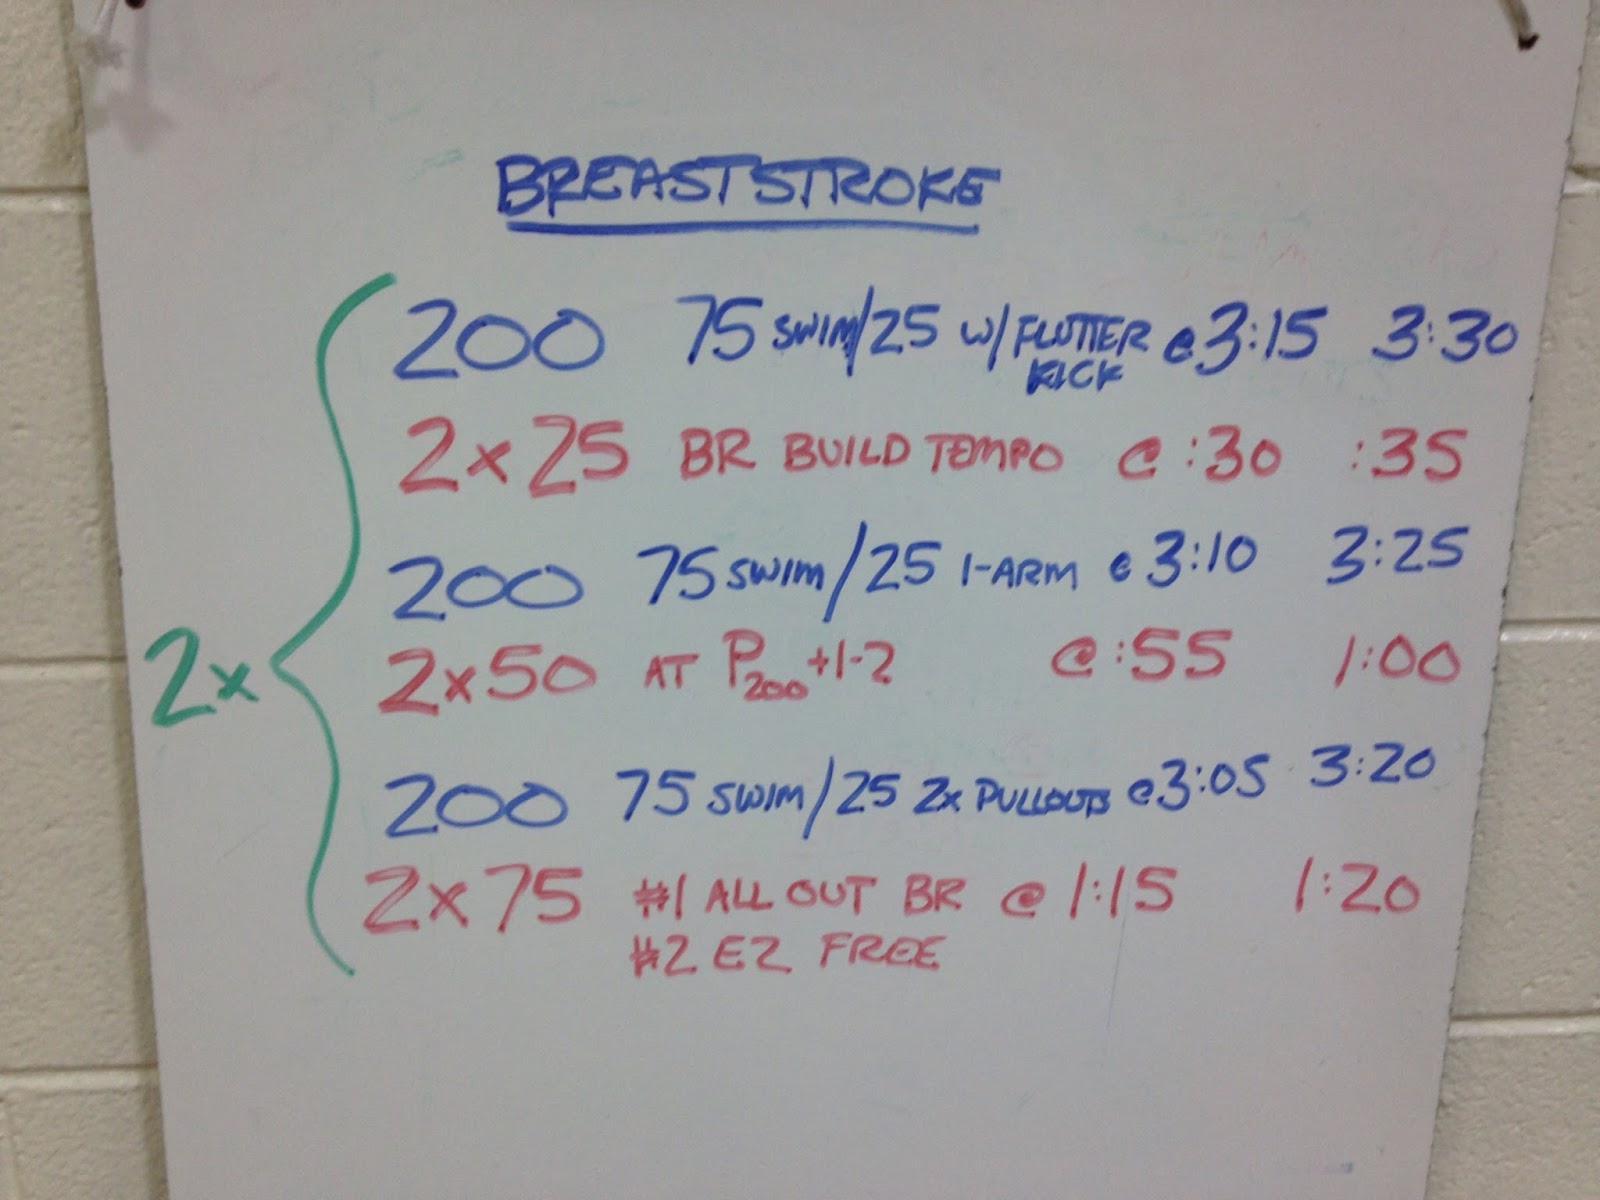 BREASTSTROKE
200 75 SWIM/25 W/ FLUTTER @ 3:15 3:30
KICK
2x25 BR BUILD TEMPO @ :30 :35
200 75 SWIM/25 1-ARM @ 3:10 3:25
2x
2x50 AT P200+1-2 @ :55 1:00
200 75 SWIM/25 2x PULLOUTS @ 3:05 3:20
2x75 #1 ALL OUT BR @ 1:15 1:20
#2 EZ FREE